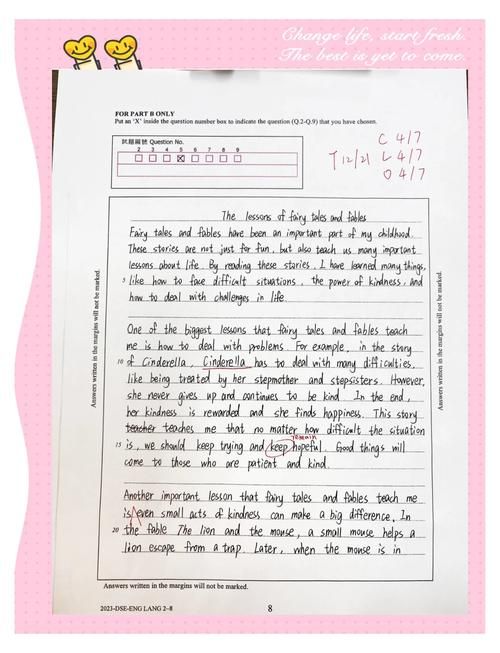 Change life, start fresh.
The best is yet to come.
FOR PART B ONLY
Put an 'X' inside the question number box to indicate the question (Q.2-Q.9) that you have chosen.
試題編號 Question No.
2 3 4 5 6 7 8 9
C 4/7
T 12/21 L 4/7
O 4/7
The lessons of fairy tales and fables
Fairy tales and fables have been an important part of my childhood.
These stories are not just for fun, but also teach us many important
lessons about life. By reading these stories, I have learned many things,
5 like how to face difficult situations, the power of kindness, and
how to deal with challenges in life.
One of the biggest lessons that fairy tales and fables teach
me is how to deal with problems. For example, in the story
10 of Cinderella, Cinderella has to deal with many difficulties,
like being treated by her stepmother and stepsisters. However,
she never gives up and continues to be kind. In the end,
her kindness is rewarded and she finds happiness. This story
teacher teaches me that no matter how difficult the situation
remain
15 is, we should keep trying and keep hopeful. Good things will
come to those who are patient and kind.
Another important lesson that fairy tales and fables teach me
is even small acts of kindness can make a big difference. In
20 the fable The lion and the mouse, a small mouse helps a
lion escape from a trap. Later, when the mouse is in
Answers written in the margins will not be marked.
Answers written in the margins will not be marked.
Answers written in the margins will not be marked.
2023-DSE-ENG LANG 2-8
8